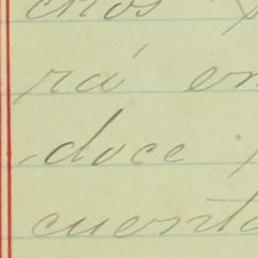 chos
rá en
doce
cuenta